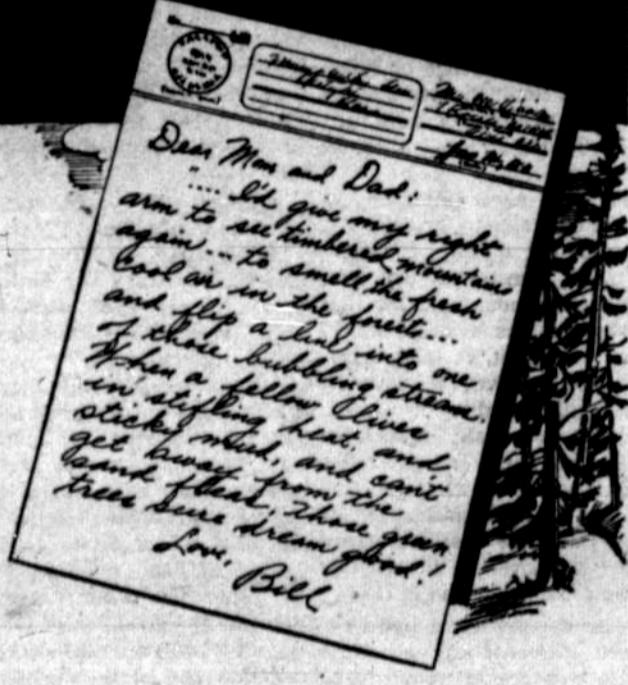 Dear Mom and Dad:
".... I'd give my right
arm to see timbered mountains
again... to smell the fresh
cool air in the forests...
and flip a line into one
of those bubbling streams.
When a fellow lives
in stifling heat, and
sticky mud, and can't
get away from the
sand fleas, those green
trees sure dream good!
Love,
Bill